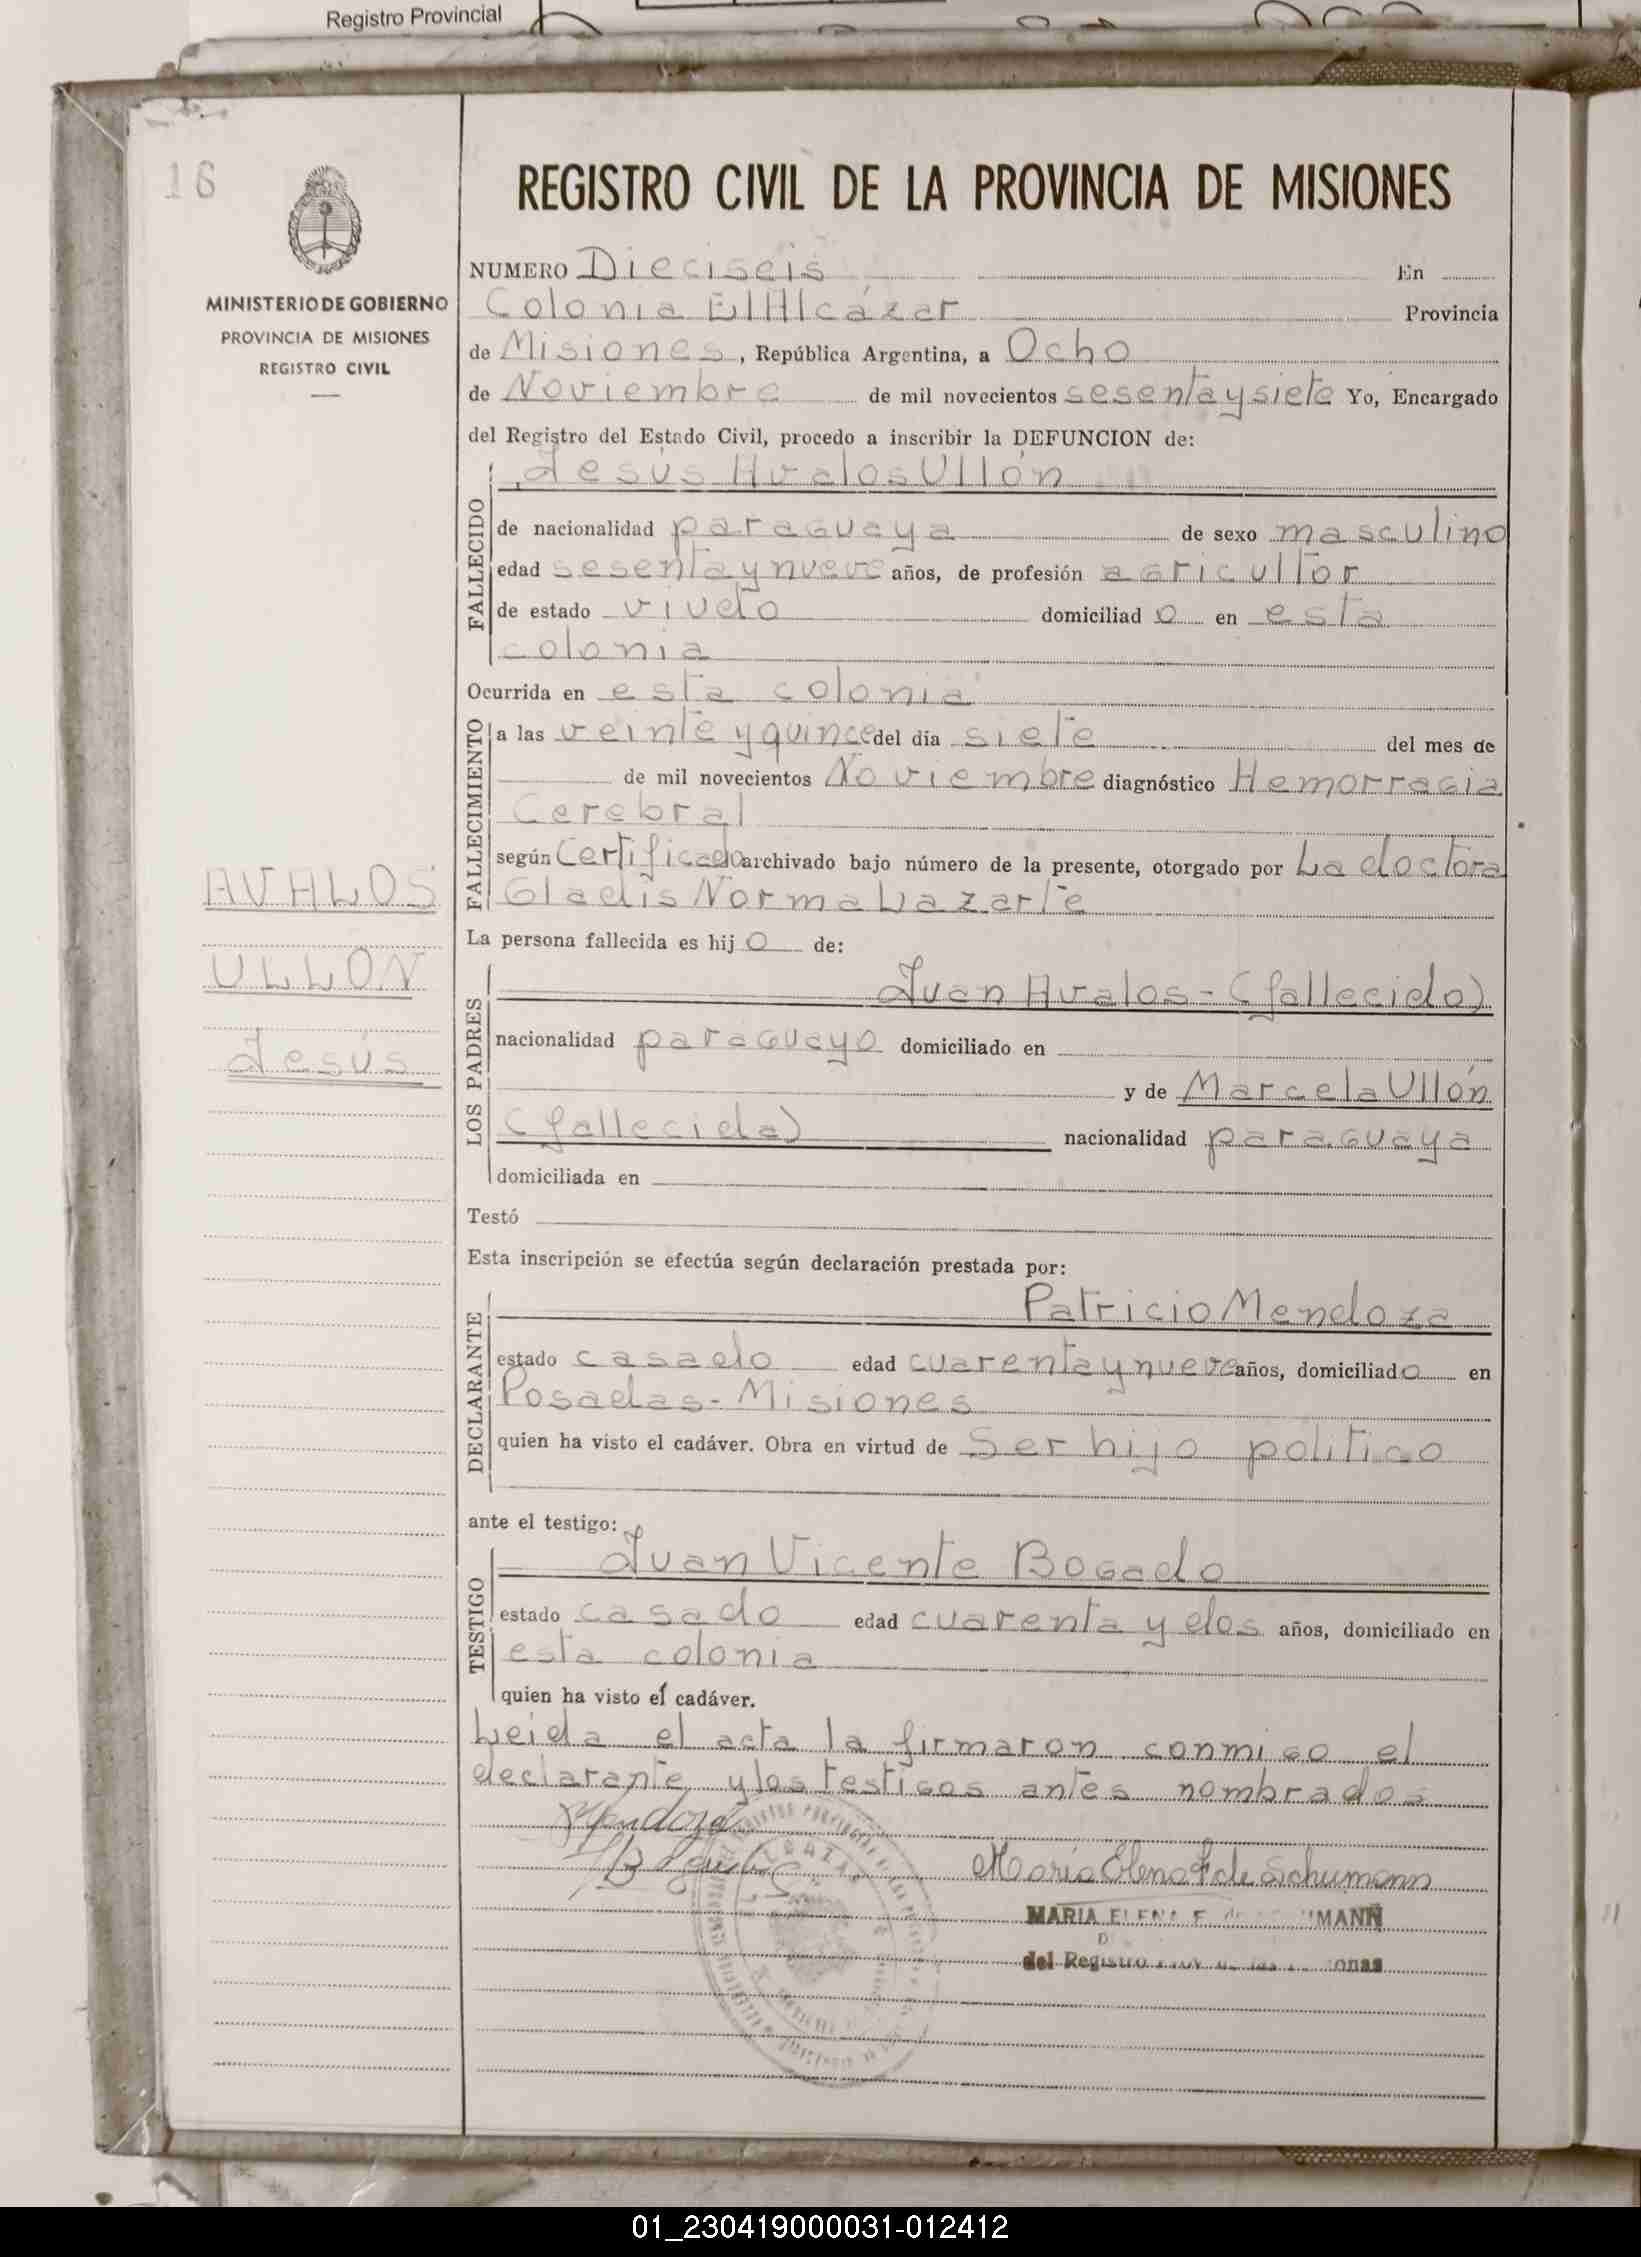 Registro Provincial
16
MINISTERIO DE GOBIERNO
PROVINCIA DE MISIONES
REGISTRO CIVIL
AVALOS
ULLÓN
Jesús
REGISTRO CIVIL DE LA PROVINCIA DE MISIONES
NUMERO Dieciseis En
Colonia El Alcázar Provincia
de Misiones, República Argentina, a Ocho
de Noviembre de mil novecientos sesenta y siete Yo, Encargado
del Registro del Estado Civil, procedo a inscribir la DEFUNCION de:
Jesús Avalos Ullón
FALLECIDO
de nacionalidad paraguaya de sexo masculino
edad sesenta y nueve años, de profesión agricultor
de estado viudo domiciliad o en esta
colonia
Ocurrida en esta colonia
FALLECIMIENTO
a las veinte y quince del día siete del mes de
de mil novecientos Noviembre diagnóstico Hemorragia
Cerebral
según Certificado archivado bajo número de la presente, otorgado por La doctora
Gladis Norma Lazarte
La persona fallecida es hij o de:
LOS PADRES
Juan Avalos - (fallecido)
nacionalidad paraguayo domiciliado en
y de Marcela Ullón
(fallecida) nacionalidad paraguaya
domiciliada en
Testó
Esta inscripción se efectúa según declaración prestada por:
DECLARANTE
Patricio Mendoza
estado casado edad cuarenta y nueve años, domiciliado en
Posadas - Misiones
quien ha visto el cadáver. Obra en virtud de ser hijo político
ante el testigo:
TESTIGO
Juan Vicente Bogado
estado casado edad cuarenta y dos años, domiciliado en
esta colonia
quien ha visto el cadáver.
Leida el acta la firmaron conmigo el
declarante y los testigos antes nombrados
Mendoza
María Elena F de Schumann
MARIA ELENA F. de SCHUMANN
del Registro Prov. de las Personas
01_230419000031-012412